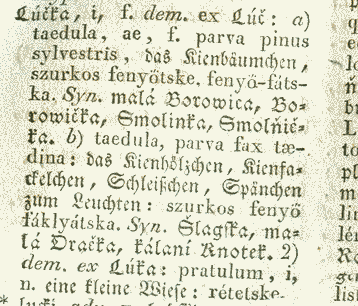 Lúčka, i, f. dem. ex Lúč: a)
taedula, ae, f. parva pinus
sylvestris, das Kienbäumchen,
szurkos fenyötske, fenyö-fáts-
ka. Syn. malá Borowica, Bo-
rowička, Smolinka, Smolňič-
ka. b) taedula, parva fax tæ-
dina: das Kienhölzchen, Kienfa-
ckelchen, Schleißchen, Spänchen
zum Leuchten: szurkos fenyö
fáklyátska. Syn. Šlagska, ma-
lá Dračka, kálaní Knotek. 2)
dem. ex Lúka: pratulum, i,
n. eine kleine Wiese: rétetske.